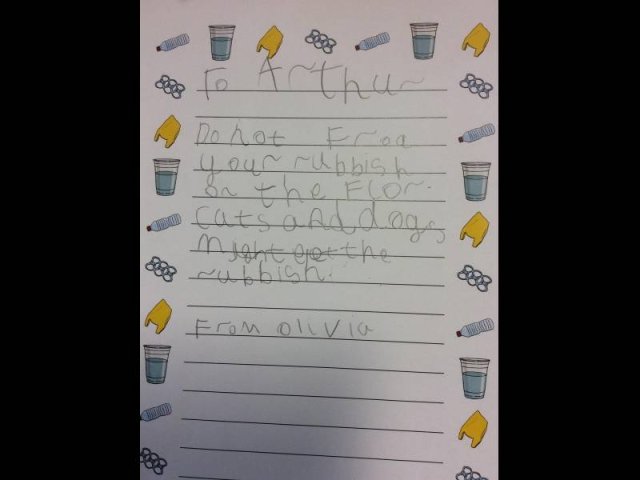 To Arthur
Do not Froa
your rubbish
on the Flor.
cats and dogs
Might get the
rubbish.
From olivia